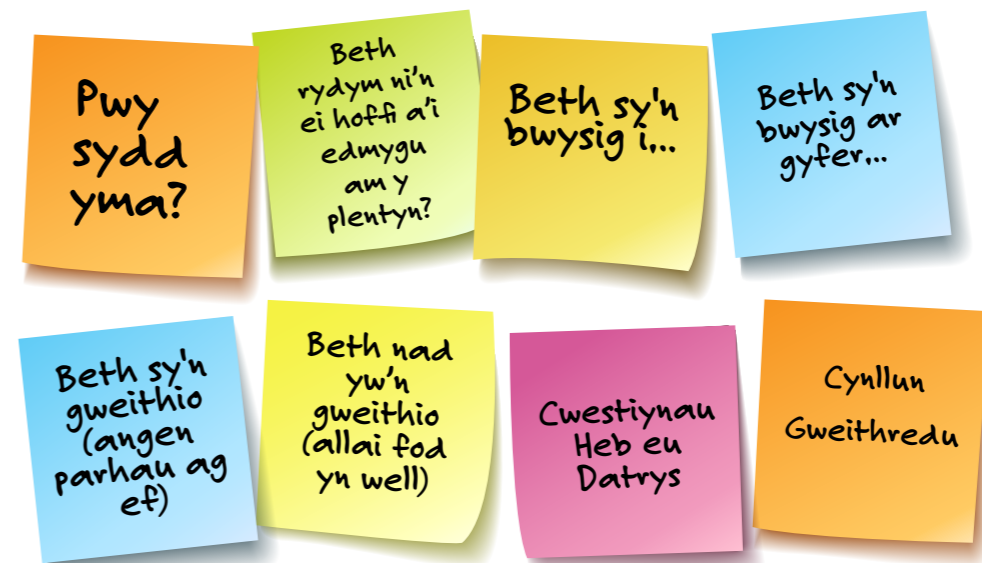 Pwy
sydd
yma?
Beth
rydym ni'n
ei hoffi a'i
edmygu
am y
plentyn?
Beth sy'n
bwysig i...
Beth sy'n
bwysig ar
gyfer...
Beth sy'n
gweithio
(angen
parhau ag
ef)
Beth nad
yw'n
gweithio
(allai fod
yn well)
Cwestiynau
Heb eu
Datrys
Cynllun
Gweithredu